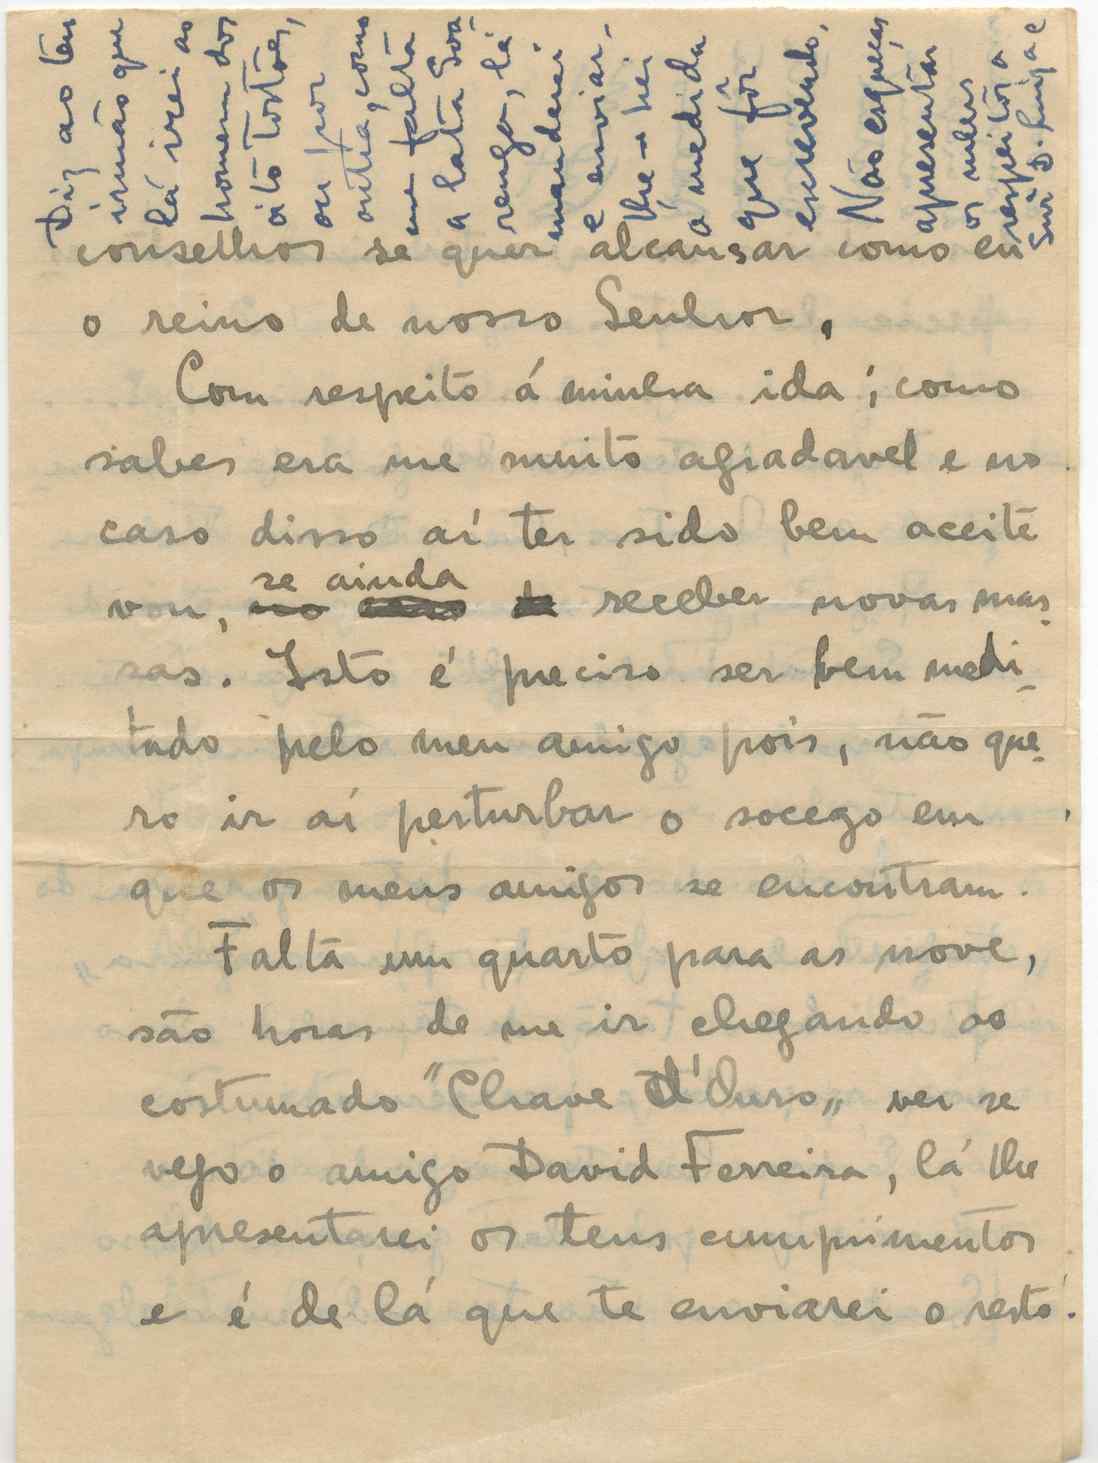 Diz ao teu
irmão que
lá irei ao
homem dos
oito tostões,
ou por
outra, como
me falta
a lata Soa-
rengo, lá
mandarei
e enviar-
lhe-hei
a medida
que fôr
escrevendo.
Não esqueças
apresentar
os meus
respeitos a
Snr. D.
conselhos se quer alcansar como eu
o reino de nosso Senhor.
Com respeito á minha ida; como
sabes era me muito agradavel e no
caso disso aí ter sido bem aceite
vou, no caso de se ainda receber novas mas-
sas. Isto é preciso ser bem medi-
tado pelo meu amigo pois, não que-
ro ir aí perturbar o socego em
que os meus amigos se encontram.
Falta um quarto para as nove,
são horas de me ir chegando ao
costumado "Chave d'Ouro„ ver se
vejo o amigo David Ferreira, lá lhe
apresentarei os teus cumprimentos
e é de lá que te enviarei o resto.